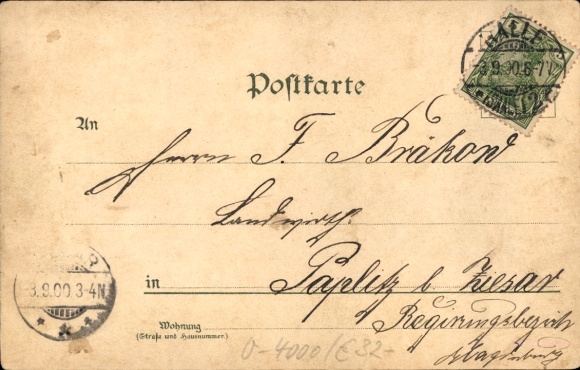 Postkarte
HALLE
3.9.00.6-7V.
An
Herrn F. Bräkow
Landwirth.
in Paplitz b Ziesar
Regierungsbezirk
Magdeburg
3.9.00.3-4N
Wohnung
(Straße und Hausnummer)
0-4000/€32-